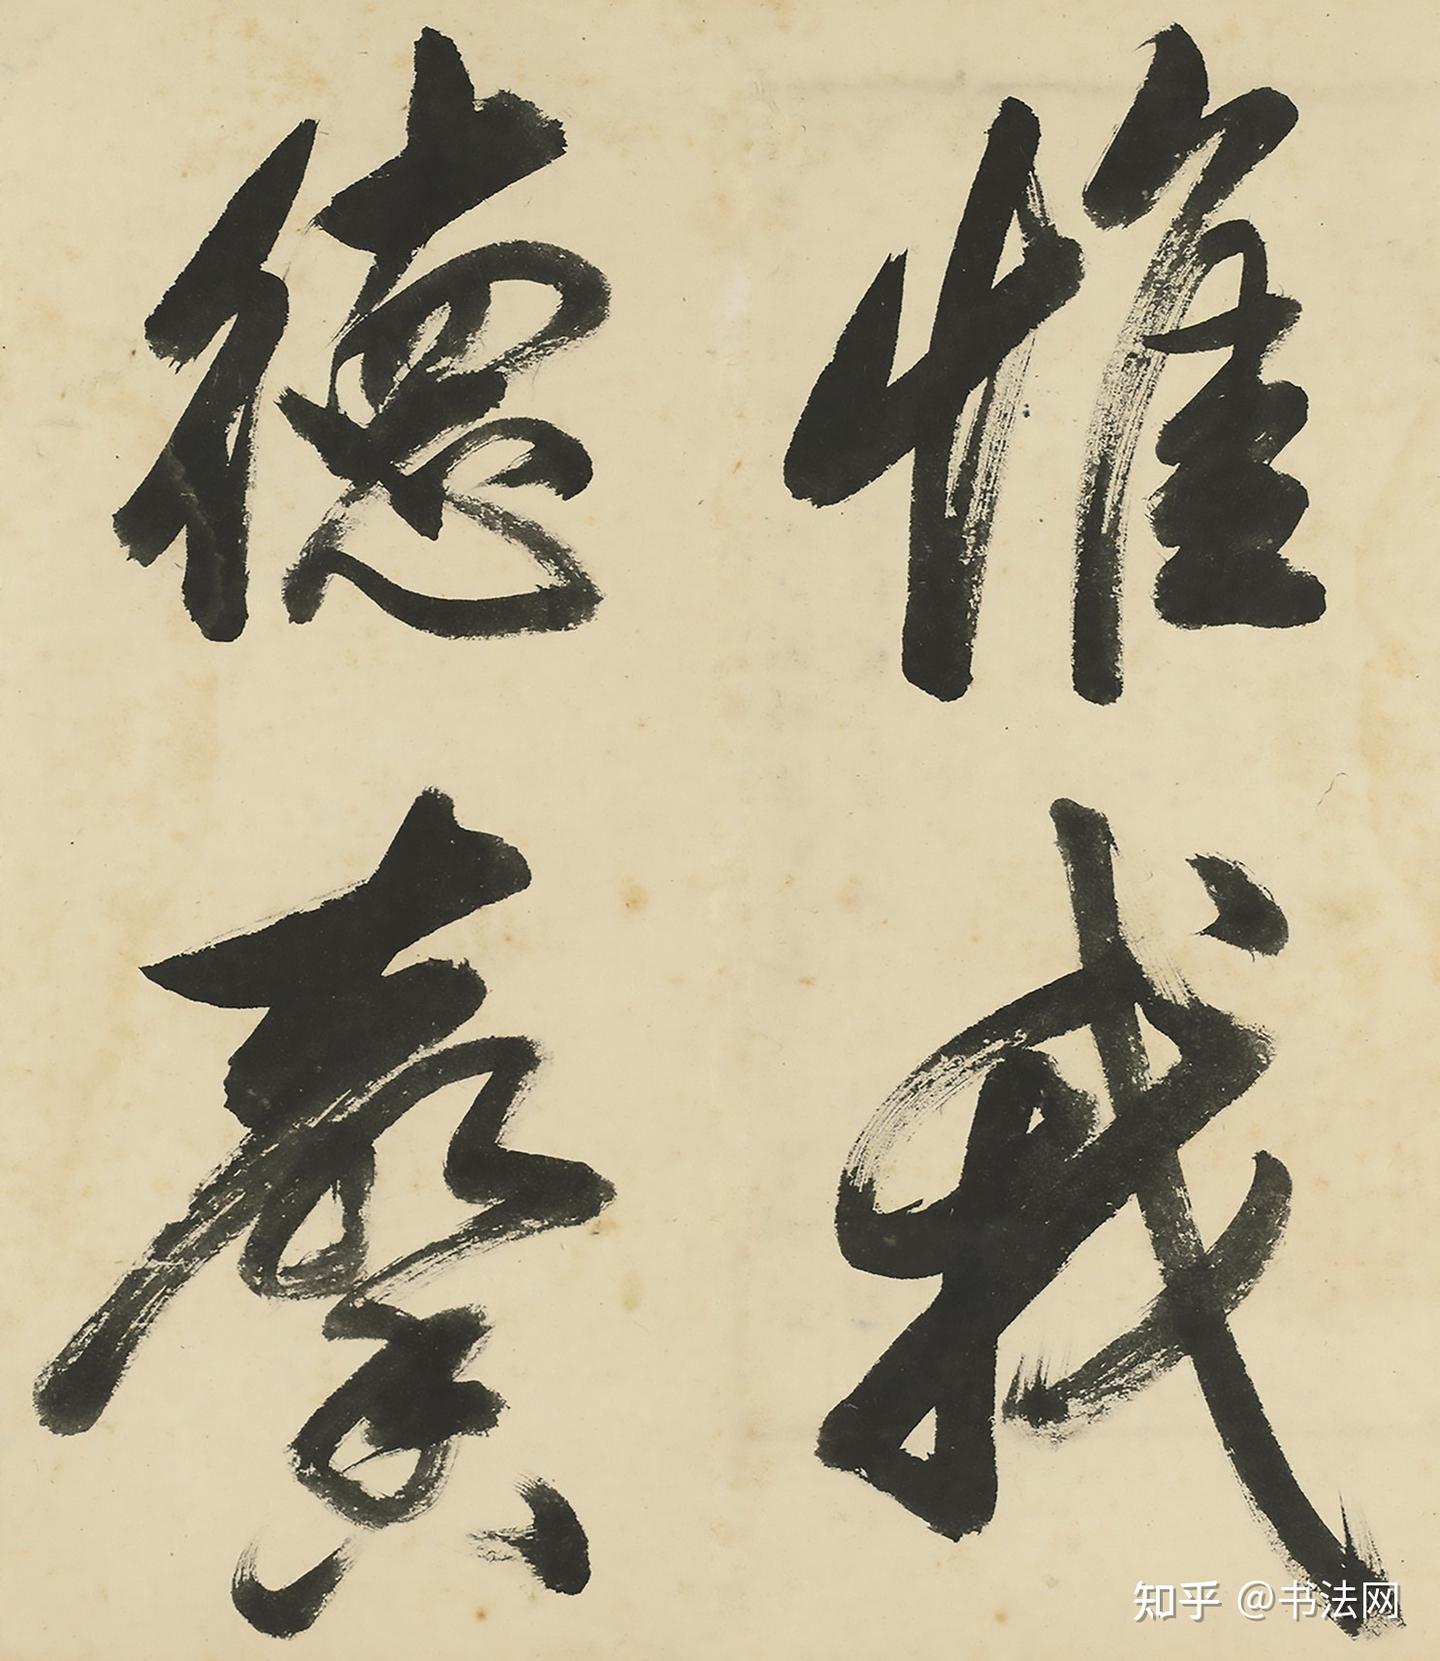 惟我
德馨
知乎 @书法网